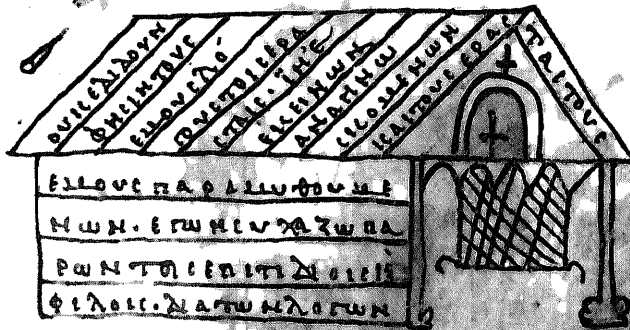 ΟΥΚΕΔΙΔΟΥΝ
ΦΗϹΙΝΤΟΥϹ
ΕΜΟΥϹΛΟ
ΓΟΥϹΤΟΙϹΕΡΑ
ϹΤΑΙϹ·
ΕΚΕΙΝΩΝ
ΑΝΑΜΝΩ
ϹΙϹΟΜΕΝΩΝ
ΚΑΙΤΟΥϹΕΡΑϹ
ΤΑϹΤΟΥϹ
ΕΜΟΥϹΠΑΡΑΜΥΘΟΥΜΕ
ΝΩΝ·ΕΓΩΗϹΥΧΑΖΩΠΑ
ΡΩΝΤΟΙϹΕΠΙΤΙΔΙΟΙϹ
ΦΙΛΟΙϹ·ΔΙΑΤΩΝΛΟΓΩΝ